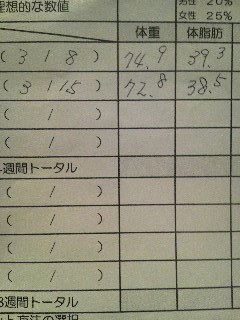 理想的な数値
男性 20%
女性 25%
体重 体脂肪
( 3 / 8 ) 74.9 39.3
( 3 / 15 ) 72.8 38.5
( / )
( / )
週間トータル
( / )
( / )
( / )
( / )
8週間トータル